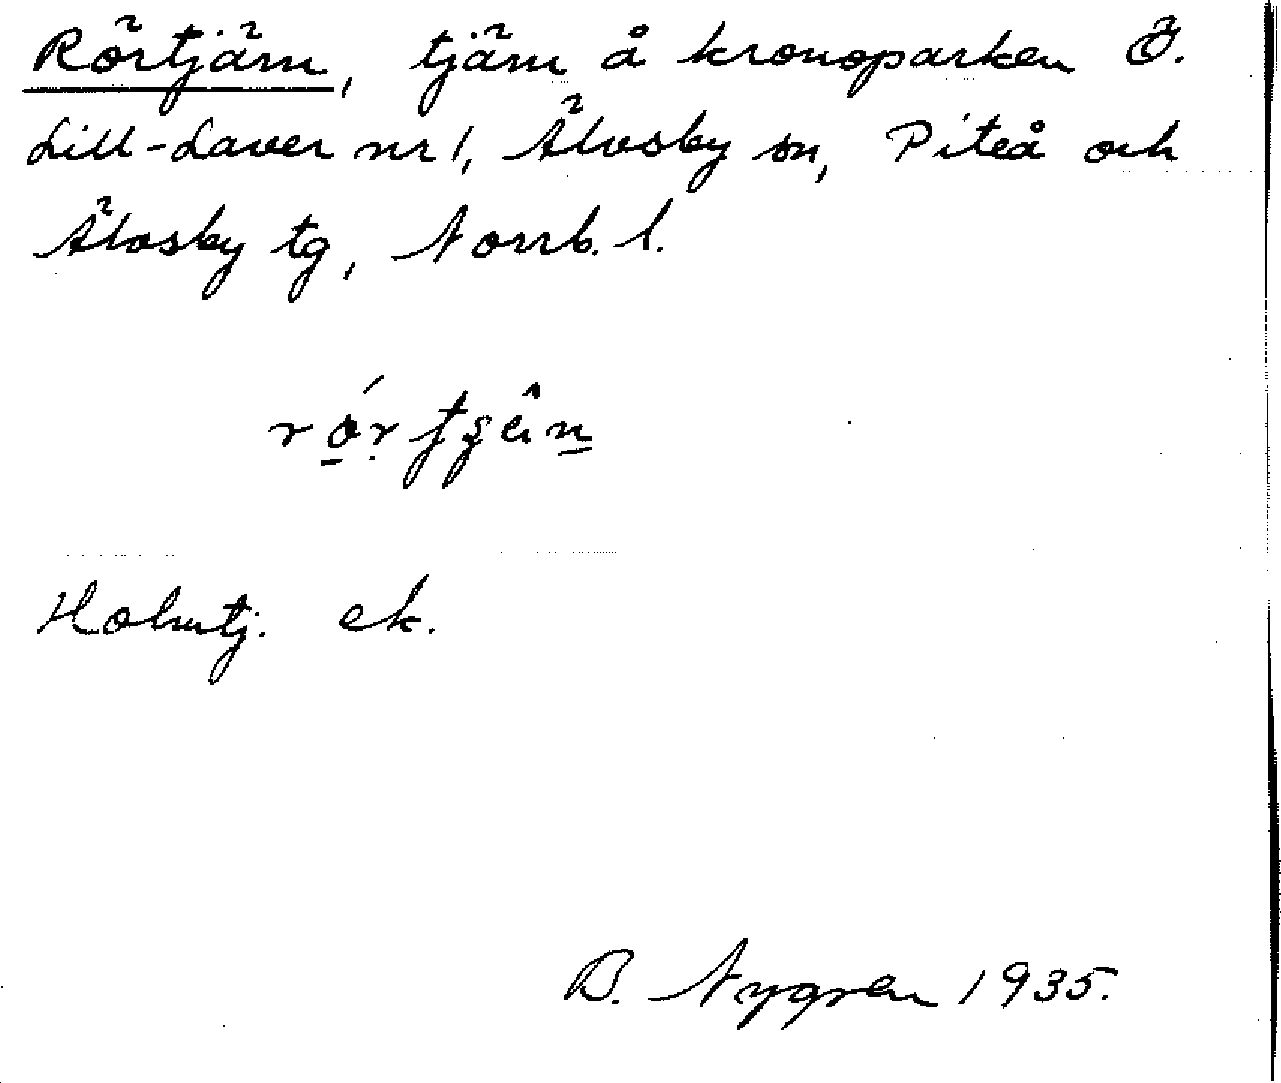 Rörtjärn, tjärn å kronoparken Ö.
Lill-Laver nr 1, Älvsby sn, Piteå och
Älvsby tg, Norrb. l.
Holmtj. ek.
B. Nygren 1935.